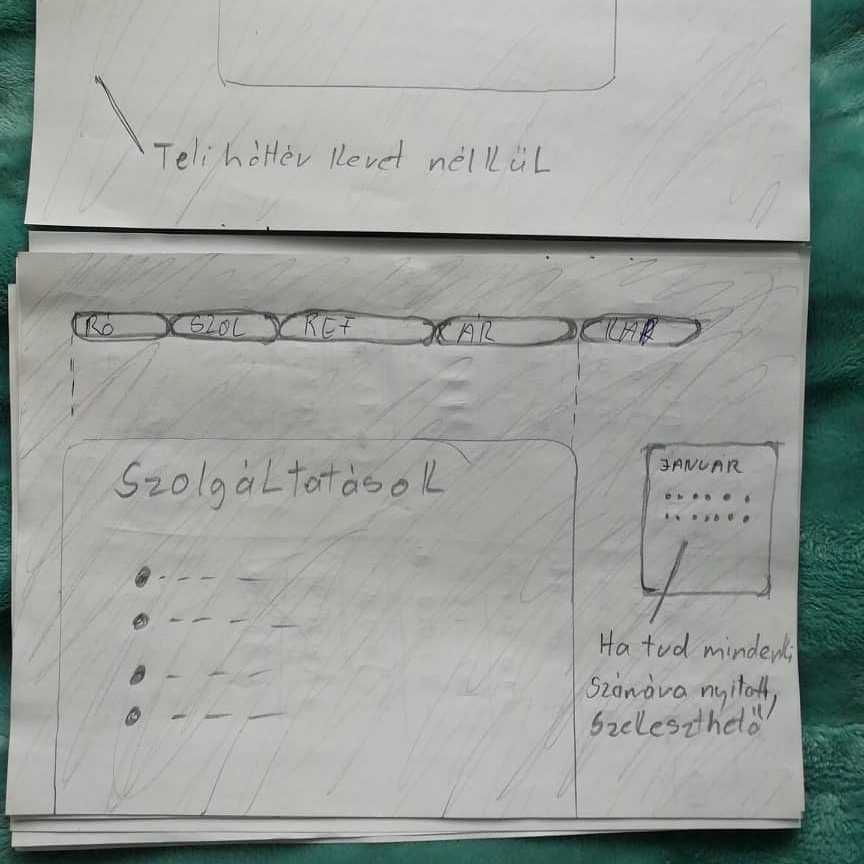 Teli háttér keret nélkül
RÓ
SZOL
REF
ÁR
KAP
Szolgáltatások
JANUÁR
Ha tud mindenki
számára nyitott,
szekeszthető